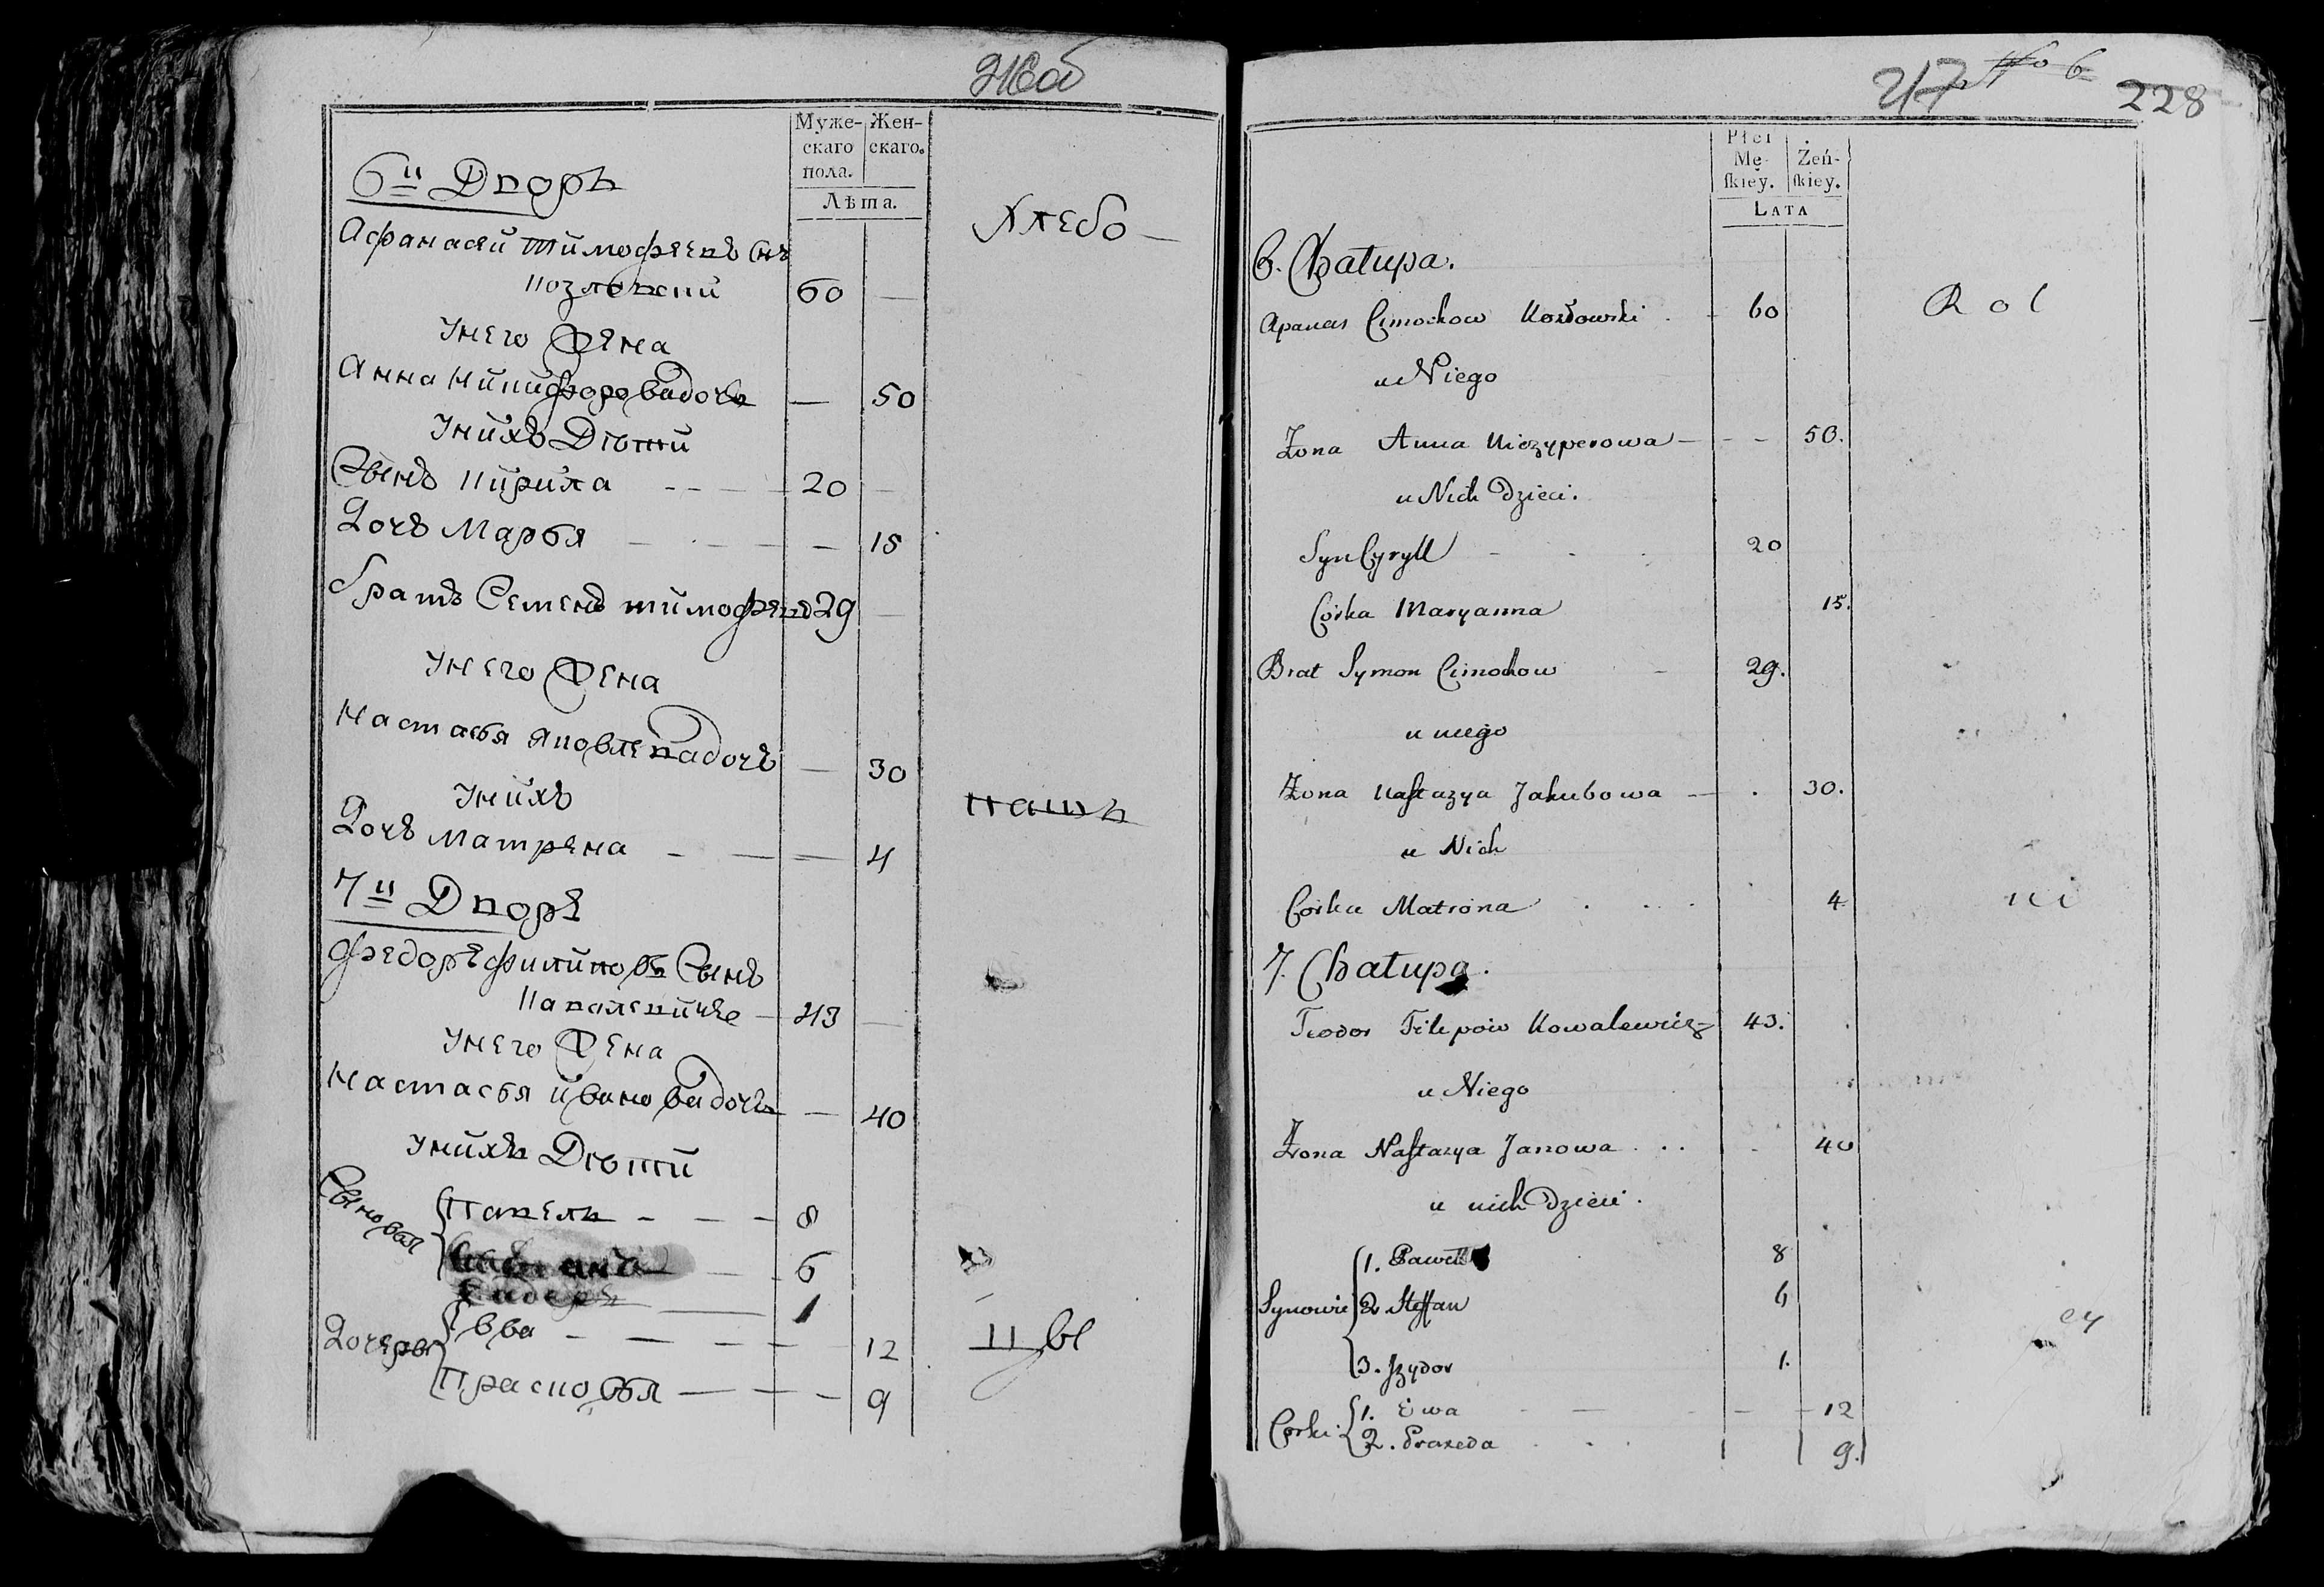 216об
Муже-
скаго
пола.
Жен-
скаго.
Лѣта.
6й Дворъ
Афанасей Тимофеевъ Снъ
Козловскй 60 —
Унего Жена
Анна Никифорова дочь — 50
Унихъ Дѣти
Сынъ Кирила - - — 20 —
Дочь Марья — - — — — 15
Братъ Семенъ тимофеевъ 29 —
Унего Жена
Настасья Яковлева дочь — 30
Унихъ
Дочь Матрена — — — 4
7й Дворъ
Федоръ филиповъ Сынъ
Ковалевичъ — 43 —
Унего Жена
Настасья иванова дочь — 40
Унихъ Дѣти
Сыновья
Павель - — — 8
6
1
Дочери
Ева - — — — 12
Прасковья — — — 9
Хлебо —
паш
цы
217
228
Płci
Mę-
ſkiey.
Żeń-
ſkiey.
LATA
6. Chałupa.
Apanas Cimochow Kozłowski . - 60
u Niego
Żona Anna Niczyperowa — - — 50.
u Nich Dzieci.
Syn Cyryll - . . 20
Corka Maryanna 15.
Brat Symon Cimochow — 29.
u niego
Żona Naſtazya Jakubowa — . 30.
u Nich
Corka Matrona . . . . 4
7. Chałupa.
Teodor Filipow Kowalewicz 43. .
u Niego
Żona Naſtazya Janowa . . . - 40
u nich Dzieci.
Synowie
1. Paweł 8
2. Steffan 6
3. Jzydor 1.
Corki
1. Ewa - — - — - 12
2. Praxeda . . . 9.
R o l
ni
cy